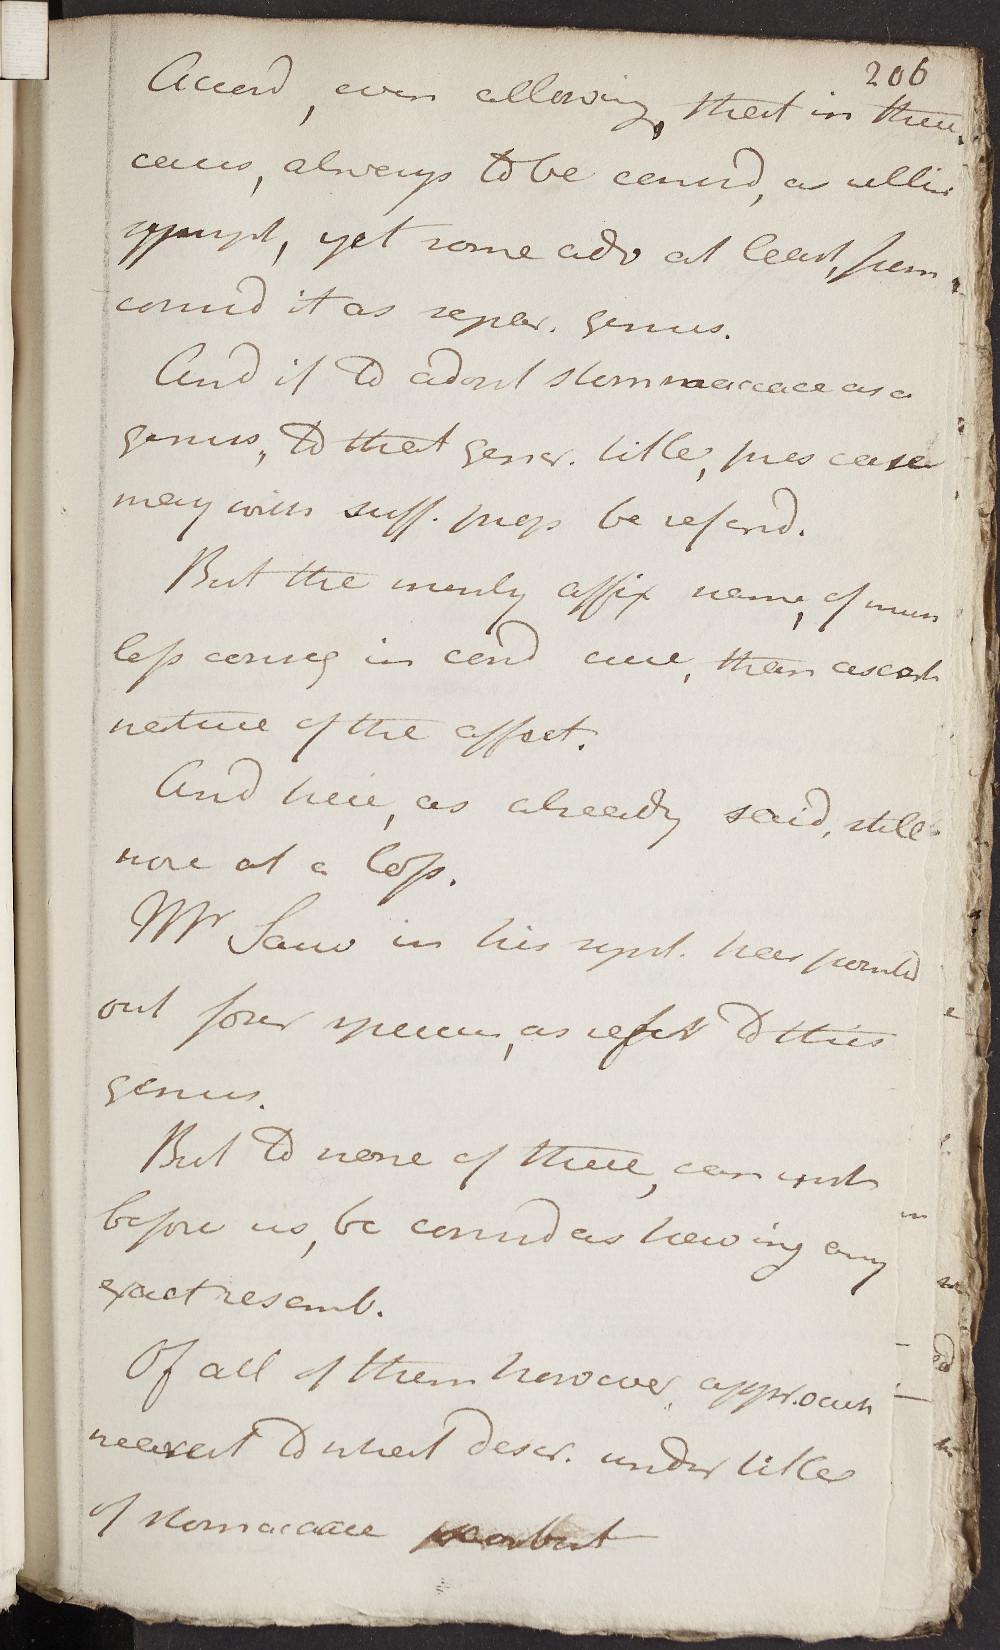 206
Accord, even allowing, that in these
cases, always to be consid, as
sympt, yet some adv at least, from
consid it as separ. genus.
And if to adopt stommacace as a
genus, to that gener. title, pres case
may with suff. prop be referd.
But the merely affix name, of much
less conseq in cond cure, than ascert
nature of the affect.
And here, as already said, still
more at a loss.
Mr Sauv in his syst. has pointd
out sever species, as refer to this
genus.
But to none of these, can
before us, be consid as having any
exact resemb.
Of all of them however, approach
nearest to what descr. under title
of stomacace